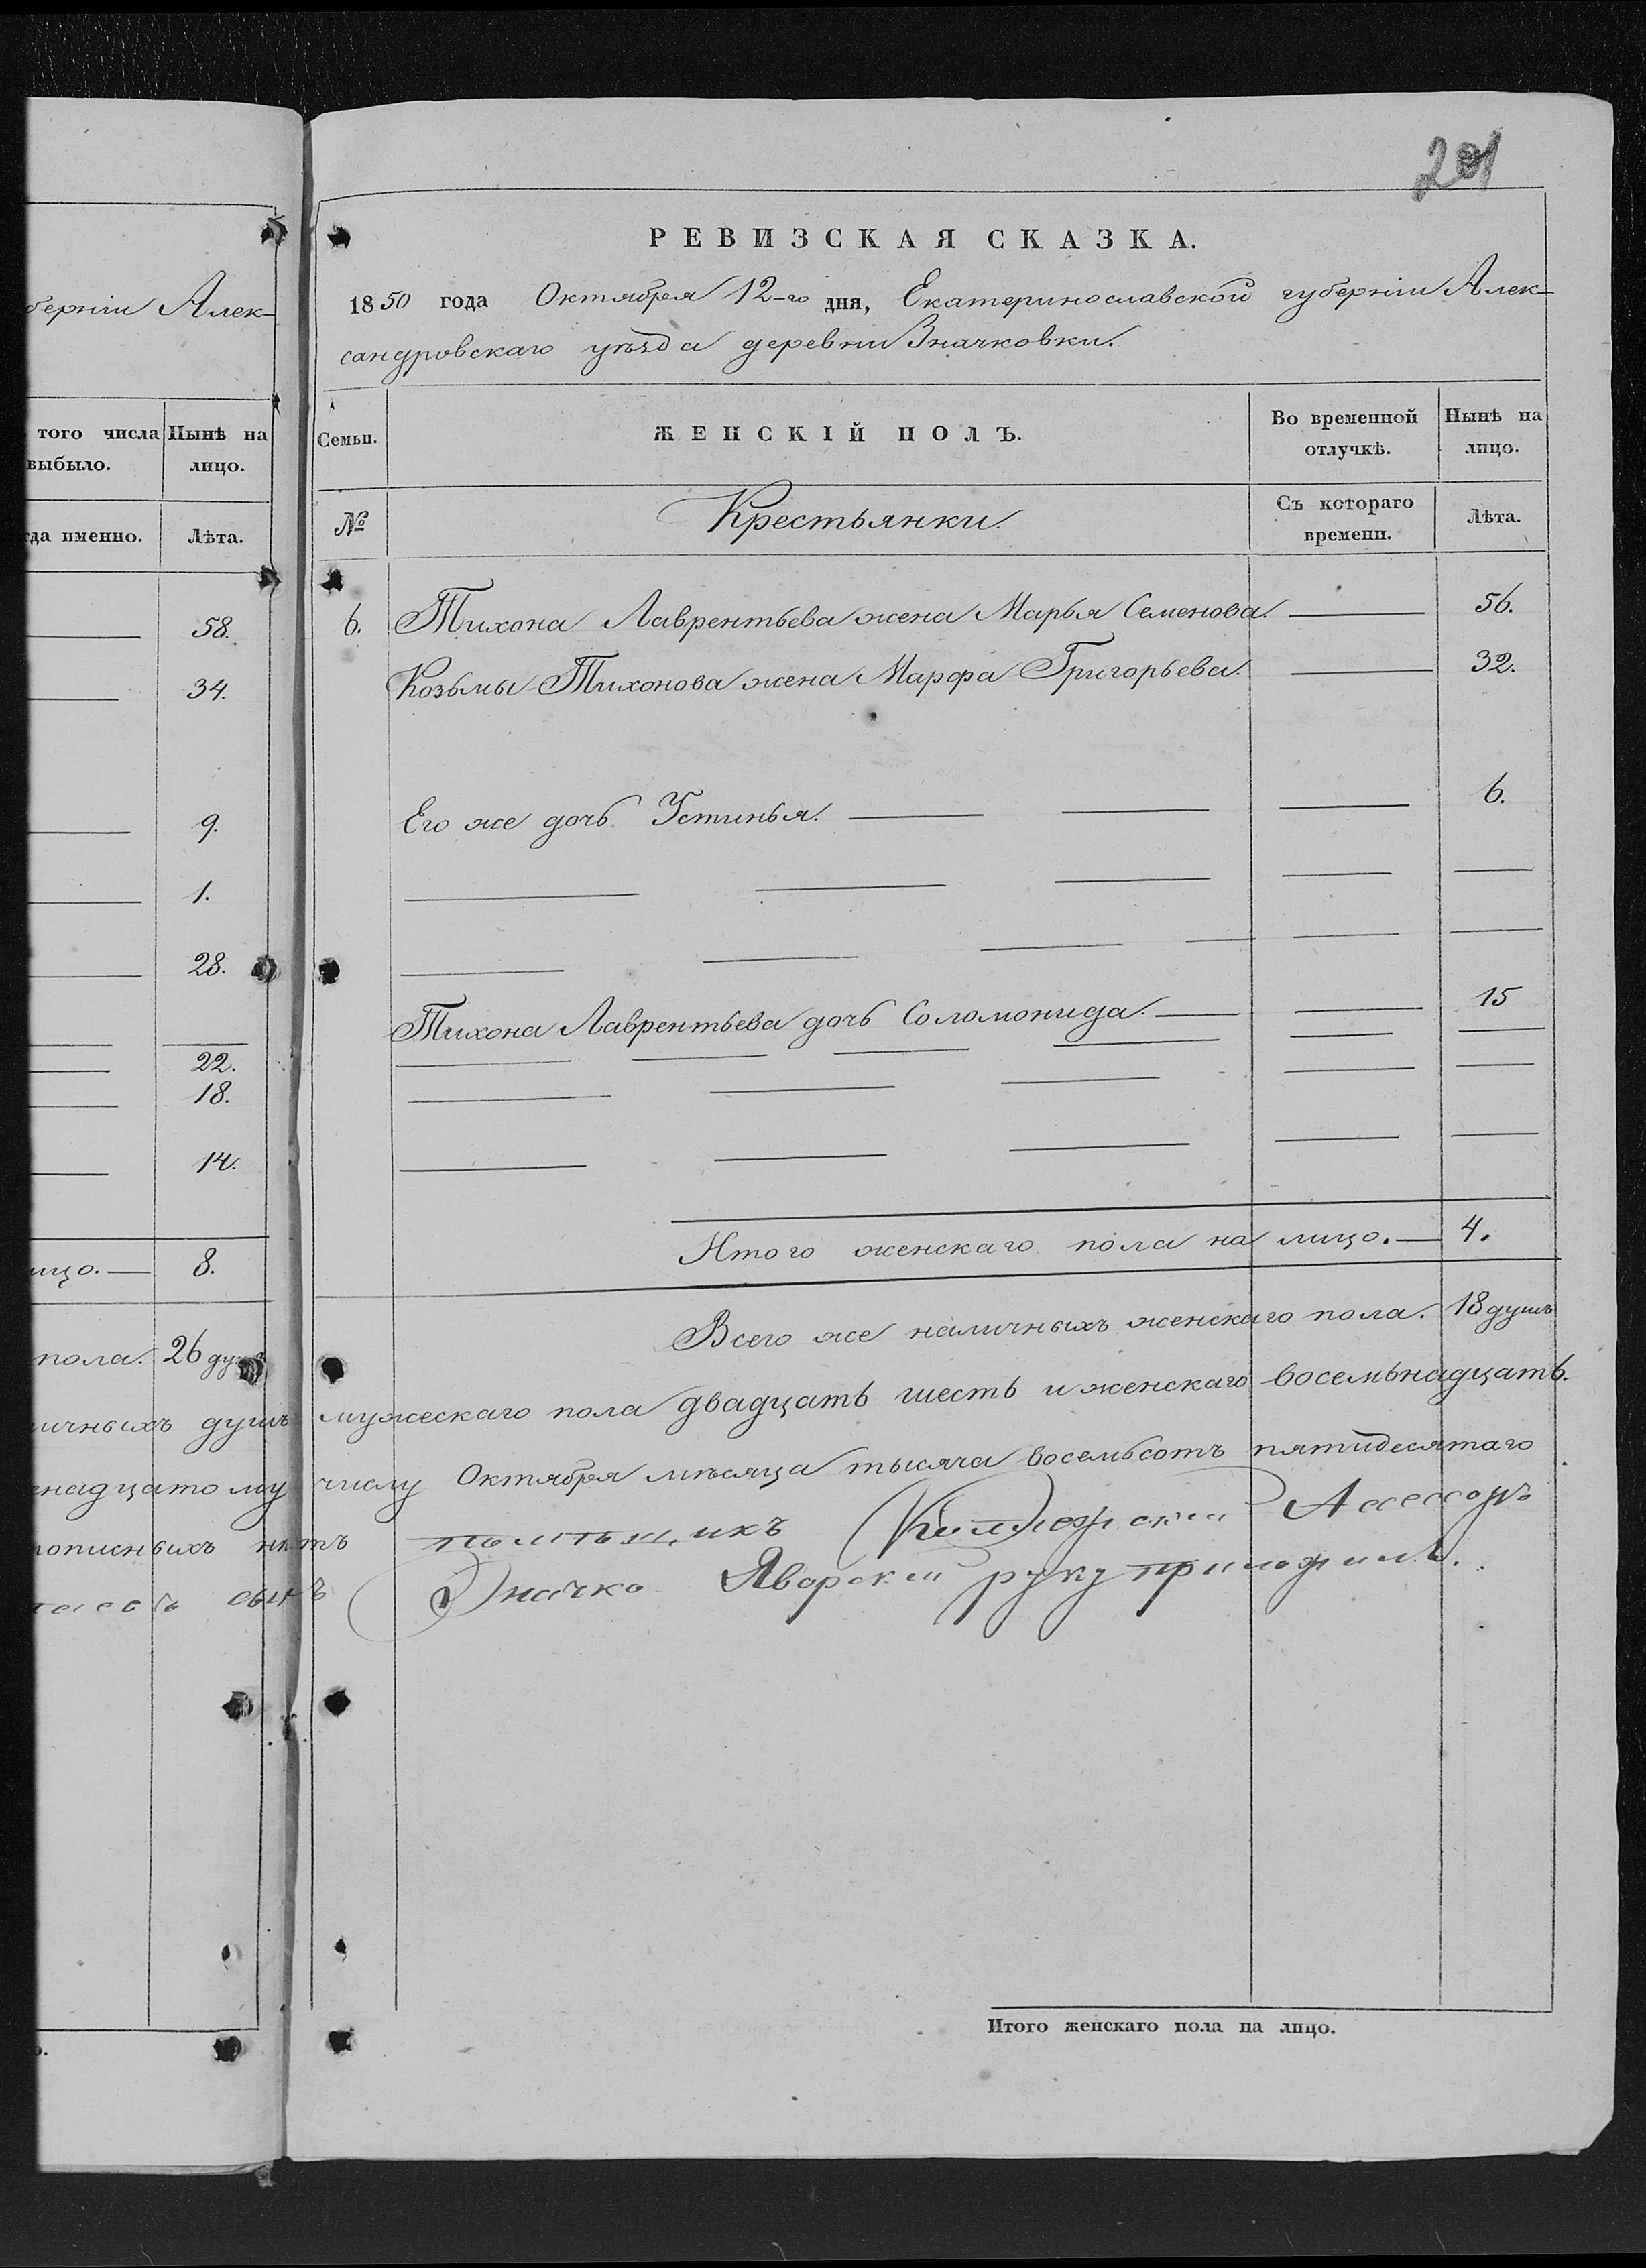 201
РЕВИЗСКАЯ СКАЗКА.
1850 года Октября 12-го дня, Екатеринославской губерніи Алек-
сандровскаго уѣзда деревни Значковки.
берніи Алек-
того числа выбыло.
Нынѣ на лицо.
да именно.
Лѣта.
58.
34.
9.
1.
28.
22.
18.
14.
ицо. — 8.
пола. 26
Семьи.
ЖЕНСКІЙ ПОЛЪ.
Во временной отлучкѣ.
Нынѣ на лицо.
№
Крестьянки.
Съ котораго времени.
Лѣта.
6. Тихона Лаврентьева жена Марья Семенова. — 56.
Козьмы Тихонова жена Марфа Григорьева. — 32.
Его же дочь Устинья. — — — 6.
Тихона Лаврентьева дочь Соломонида. — — 15
Итого женскаго пола на лицо. — 4.
Всего же наличныхъ женскаго пола. 18 душъ
ичныхъ душъ мужескаго пола двадцать шесть и женскаго восемьнадцать.
надцатому числу Октября мѣсяца тысяча восемьсотъ пятидесятаго
рописныхъ нѣтъ помѣщикъ Коллежскій Ассессоръ
Значко Яворскій руку приложилъ.
Итого женскаго пола на лицо.